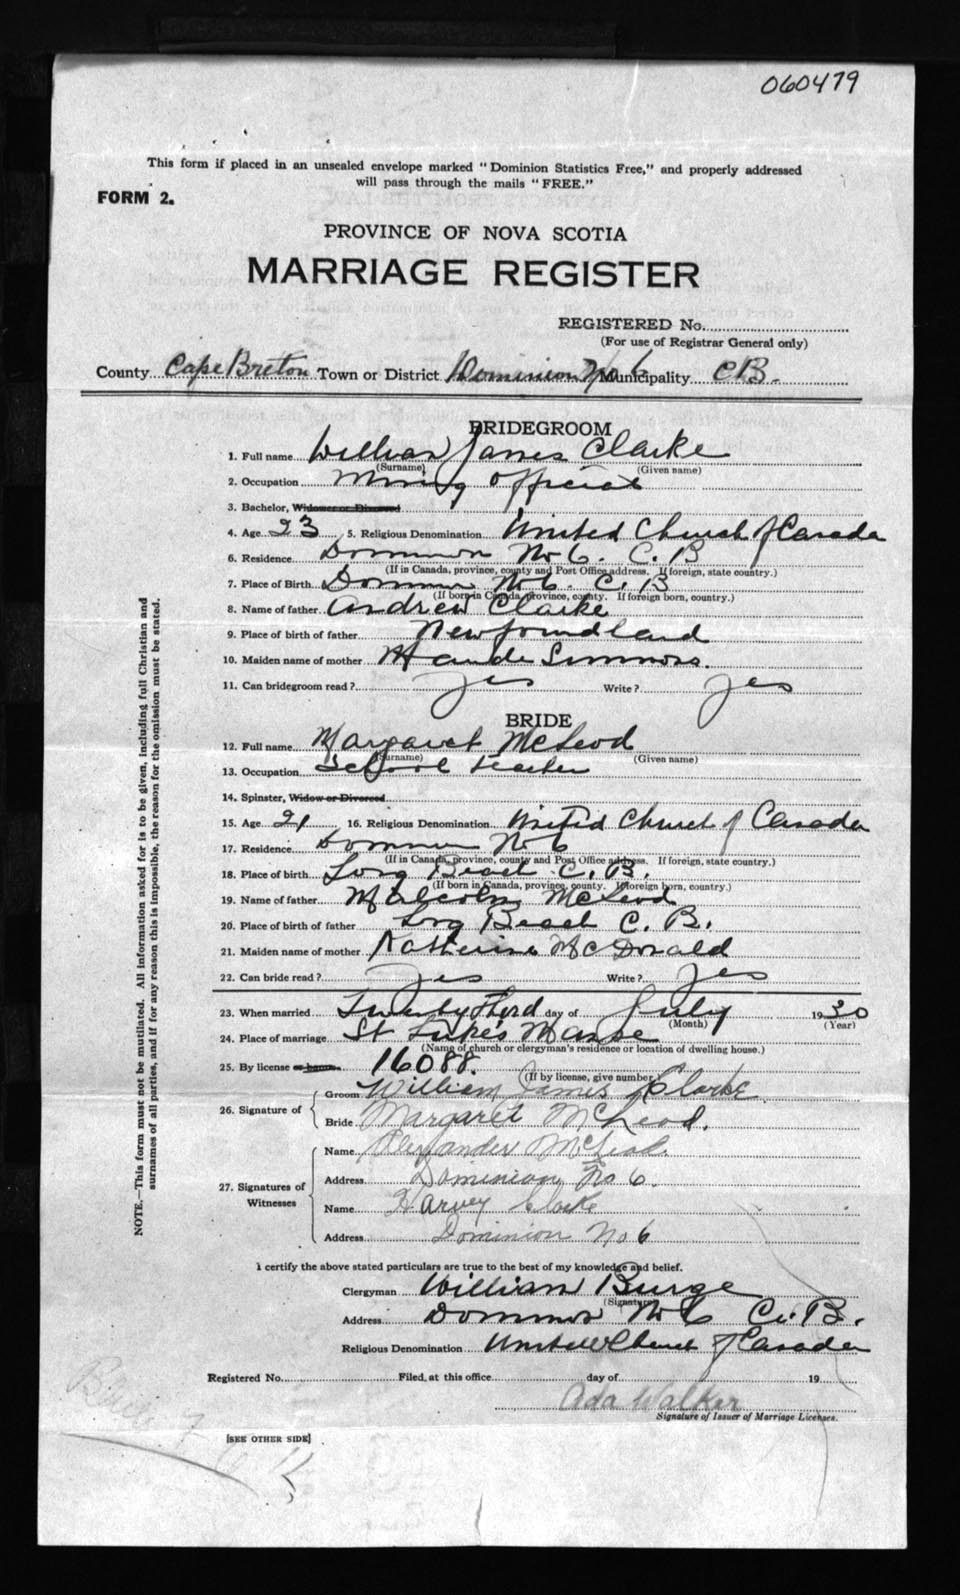 060479
This form if placed in an unsealed envelope marked "Dominion Statistics Free," and properly addressed
will pass through the mails "FREE."
FORM 2.
PROVINCE OF NOVA SCOTIA
MARRIAGE REGISTER
REGISTERED No.
(For use of Registrar General only)
County Cape Breton Town or District Dominion No 6 Municipality C B.
BRIDEGROOM
1. Full name William James Clarke
(Surname) (Given name)
2. Occupation Mining Official
3. Bachelor, Widower or Divorced
4. Age 23 5. Religious Denomination United Church of Canada
6. Residence Dominion No 6. C. B
(If in Canada, province, county and Post Office address. If foreign, state country.)
7. Place of Birth Dominion No 6. C. B
(If born in Canada, province, county. If foreign born, country.)
8. Name of father Andrew Clarke
9. Place of birth of father Newfoundland
10. Maiden name of mother Maude Simmons.
11. Can bridegroom read? Yes Write? Yes
BRIDE
12. Full name Margaret McLeod
(Surname) (Given name)
13. Occupation School teacher
14. Spinster, Widow or Divorced
15. Age 21 16. Religious Denomination United Church of Canada
17. Residence Dominion No 6
(If in Canada, province, county and Post Office address. If foreign, state country.)
18. Place of birth Long Beach C. B.
(If born in Canada, province, county. If foreign born, country.)
19. Name of father Malcolm McLeod
20. Place of birth of father Long Beach C. B.
21. Maiden name of mother Katherine McDonald
22. Can bride read? Yes Write? Yes
23. When married Twenty third day of July 1930
(Month) (Year)
24. Place of marriage St Luke's Manse
(Name of church or clergyman's residence or location of dwelling house.)
25. By license or banns. 16088.
(If by license, give number)
26. Signature of
Groom William James Clarke
Bride Margaret McLeod.
27. Signatures of Witnesses
Name Alexander McLeod
Address Dominion No 6.
Name Harvey Clarke
Address Dominion No 6
I certify the above stated particulars are true to the best of my knowledge and belief.
Clergyman William Burge
(Signature)
Address Dominion No 6 C. B.
Religious Denomination United Church of Canada
Registered No. Filed, at this office day of 19
Ada Walker
Signature of Issuer of Marriage Licenses.
[SEE OTHER SIDE]
NOTE.—This form must not be mutilated. All information asked for is to be given, including full Christian and
surnames of all parties, and if for any reason this is impossible, the reason for the omission must be stated.